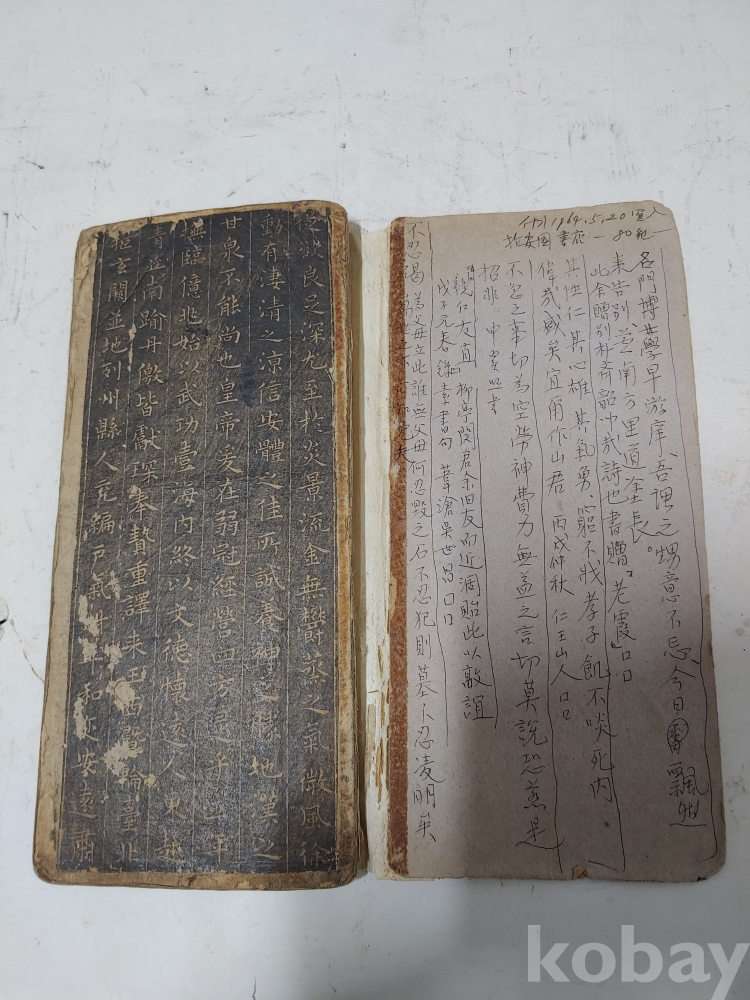 付引 1964.5.20 買入
於安國書店 - 80원 -
名門博學早游庠、吾謂之甥意不忘、今日 飄然
来告別、芝南方里道塗長。
此金贈別朴斎詔冲我詩也書贈「老霞」口口
其性仁其心雄 其氣勇、窮不戕孝子飢不啖死肉
偉哉威矣宜甫作山君 丙戌仲秋 仁王山人 口口
不忍之事切為空勞神費力無益之言切莫說恐惹是
招非 申
親仁友直 柳亭閔君余旧友而近洞貽此以敦誼
戊子元春 書句 葦滄吳世昌口口
不忍碣 為父母立此誰無父母何忍毀之石不忍犯則墓不忍凌明矣
從或良足深尤至於炎景流金無鬱蒸之氣微風徐
動有淒清之涼信安體之佳所誠養神之勝地漢之
甘泉不能尚也皇帝爰在弱冠經營四方逮乎立年
撫臨億兆始以武功壹海內終以文德懷遠人東越
青丘南踰丹徼皆獻琛奉贄重譯来王西暨輪臺北
拒玄闕並地列州縣人充編戶氣淑年和迩安遠肅
kobay